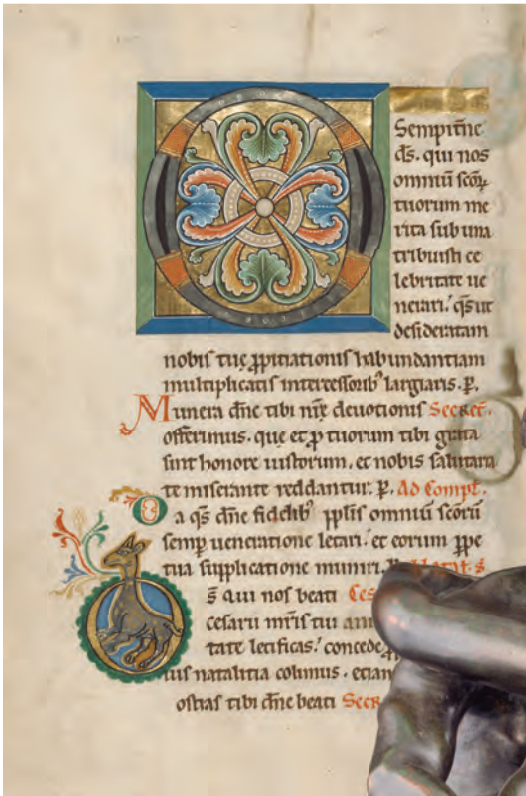 Sempitne
ds. qui nos
omniū scōꝝ
tuorum me
rita sub una
tribuisti ce
lebritate ue
nerari. qs ut
desideratam
nobis tuę ꝓpitiationis habundantiam
multiplicatis intercessorib᾿ largiaris. P.
Munera dne tibi nrę deuotionis Secret.
offerimus. que et ꝓ tuorum tibi grata
sint honore iustorum. et nobis salutaria
te miserante reddantur. P. Ad Compl.
Da qs dne fidelib᾿ pplis omniū scōrū
semp ueneratione letari. et eorum ppe
tua supplicatione muniri.
Ds qui nos beati Ces
cesarii mris tui
tate letificas. concede
ius natalitia colimus. etiam
ostias tibi dne beati Secr